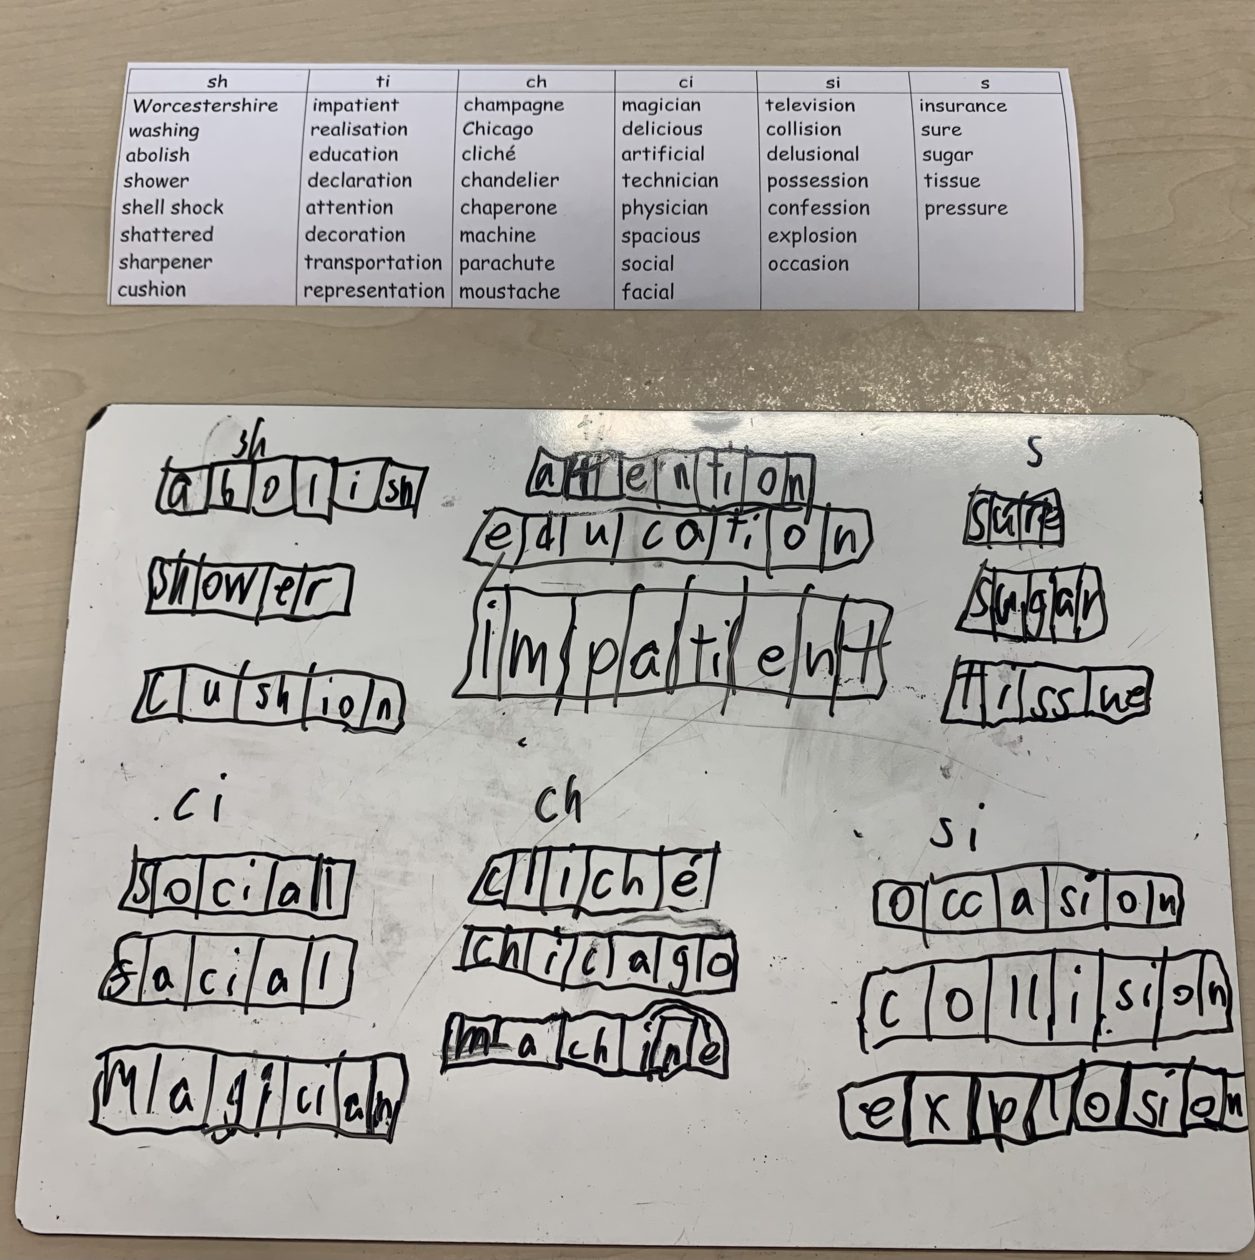 sh ti ch ci si s
Worcestershire impatient champagne magician television insurance
washing realisation Chicago delicious collision sure
abolish education cliché artificial delusional sugar
shower declaration chandelier technician possession tissue
shell shock attention chaperone physician confession pressure
shattered decoration machine spacious explosion
sharpener transportation parachute social occasion
cushion representation moustache facial
sh
abolish
shower
cushion
attention
education
impatient
s
sure
sugar
tissue
ci
social
facial
Magician
ch
cliché
chicago
machine
si
occasion
collision
explosion